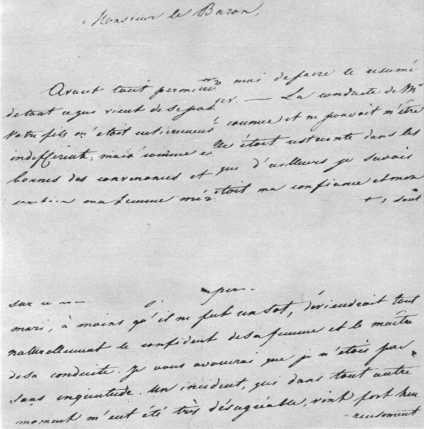 Monsieur le Baron,
Avant tout permettez moi de faire le resumé
de tout ce qui vient de se passer. — La conduite de Mr
Votre fils m'étoit entierement connue et ne pouvoit m'être
indifférente; mais comme elle étoit restreinte dans les
bornes des convenances et que d'ailleurs je savois
combien ma femme méritoit ma confiance et mon
sur
mari, à moins qu'il ne fut un sot, deviendroit tout
naturellement le confident de sa femme et le maître
de sa conduite. Je vous avouerai que je n'étois pas
sans inquietude. Un incident, qui dans tout autre
moment m'eut été très désagréable, vint fort heu
reusement